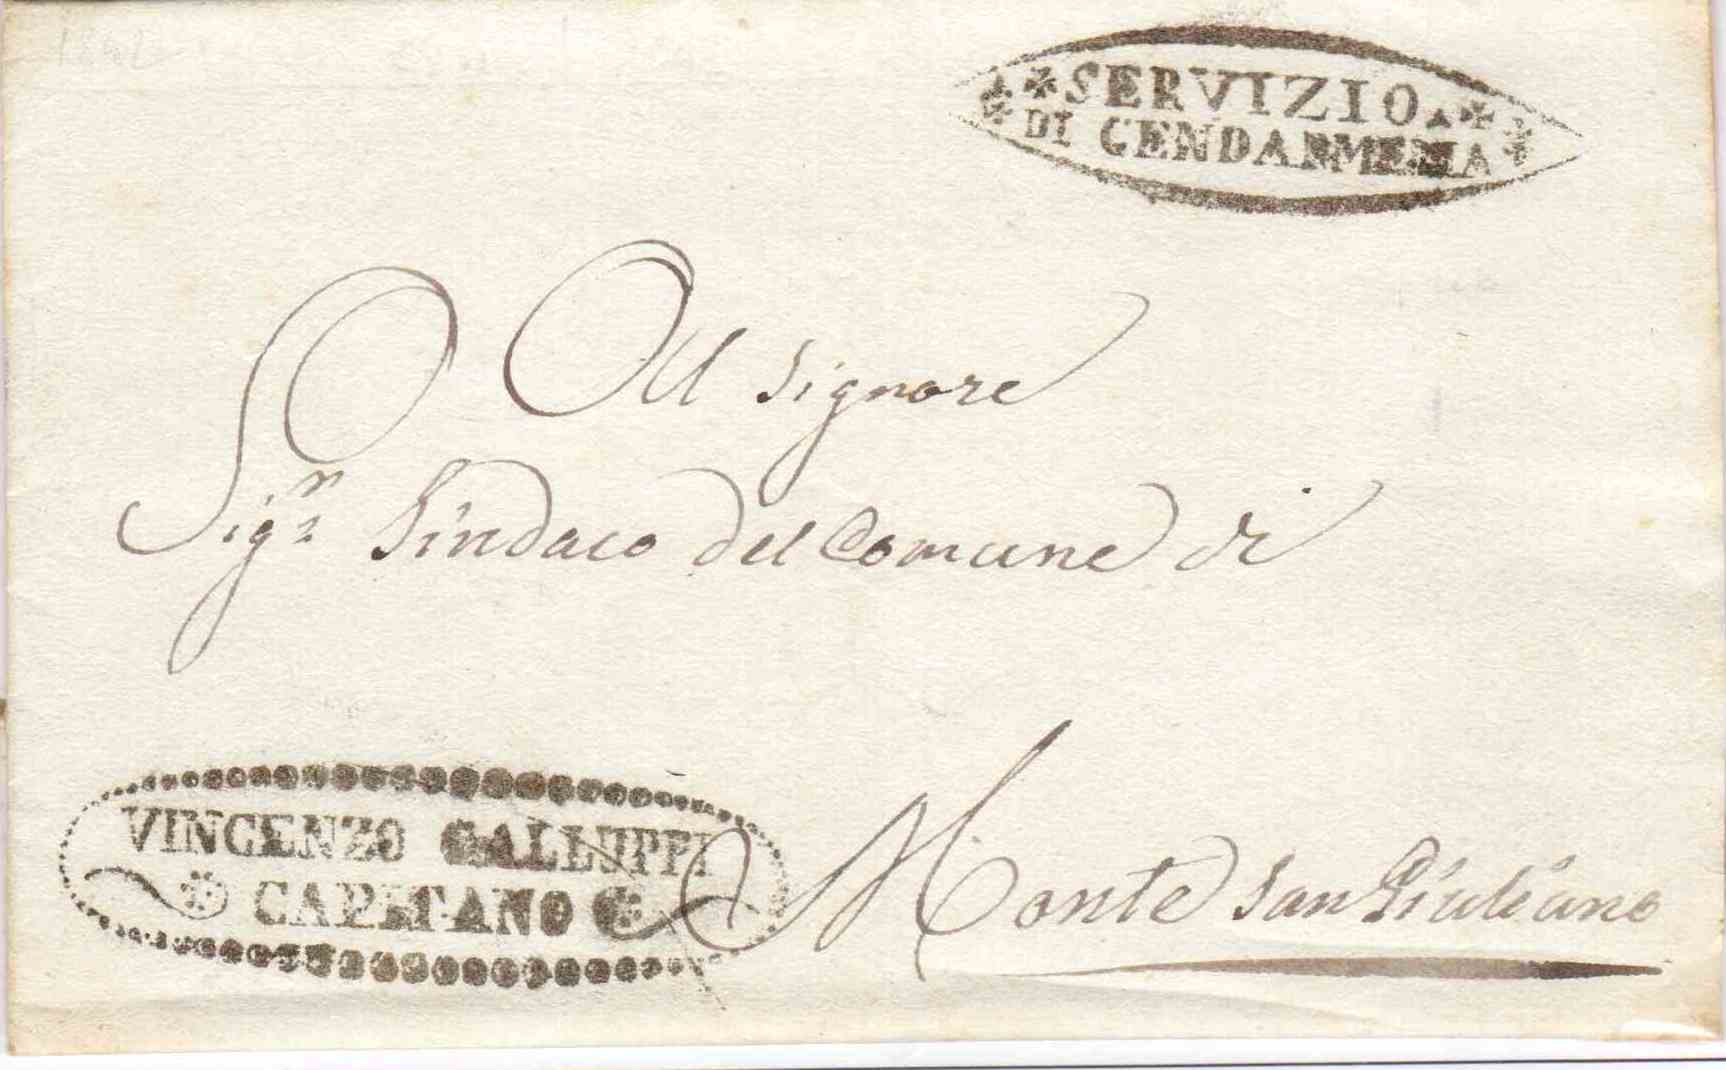 SERVIZIO
DI GENDARMERIA
Al Signore
Sig.r Sindaco del Comune di
Monte San Giuliano
VINCENZO GALLUPPI
CAPITANO